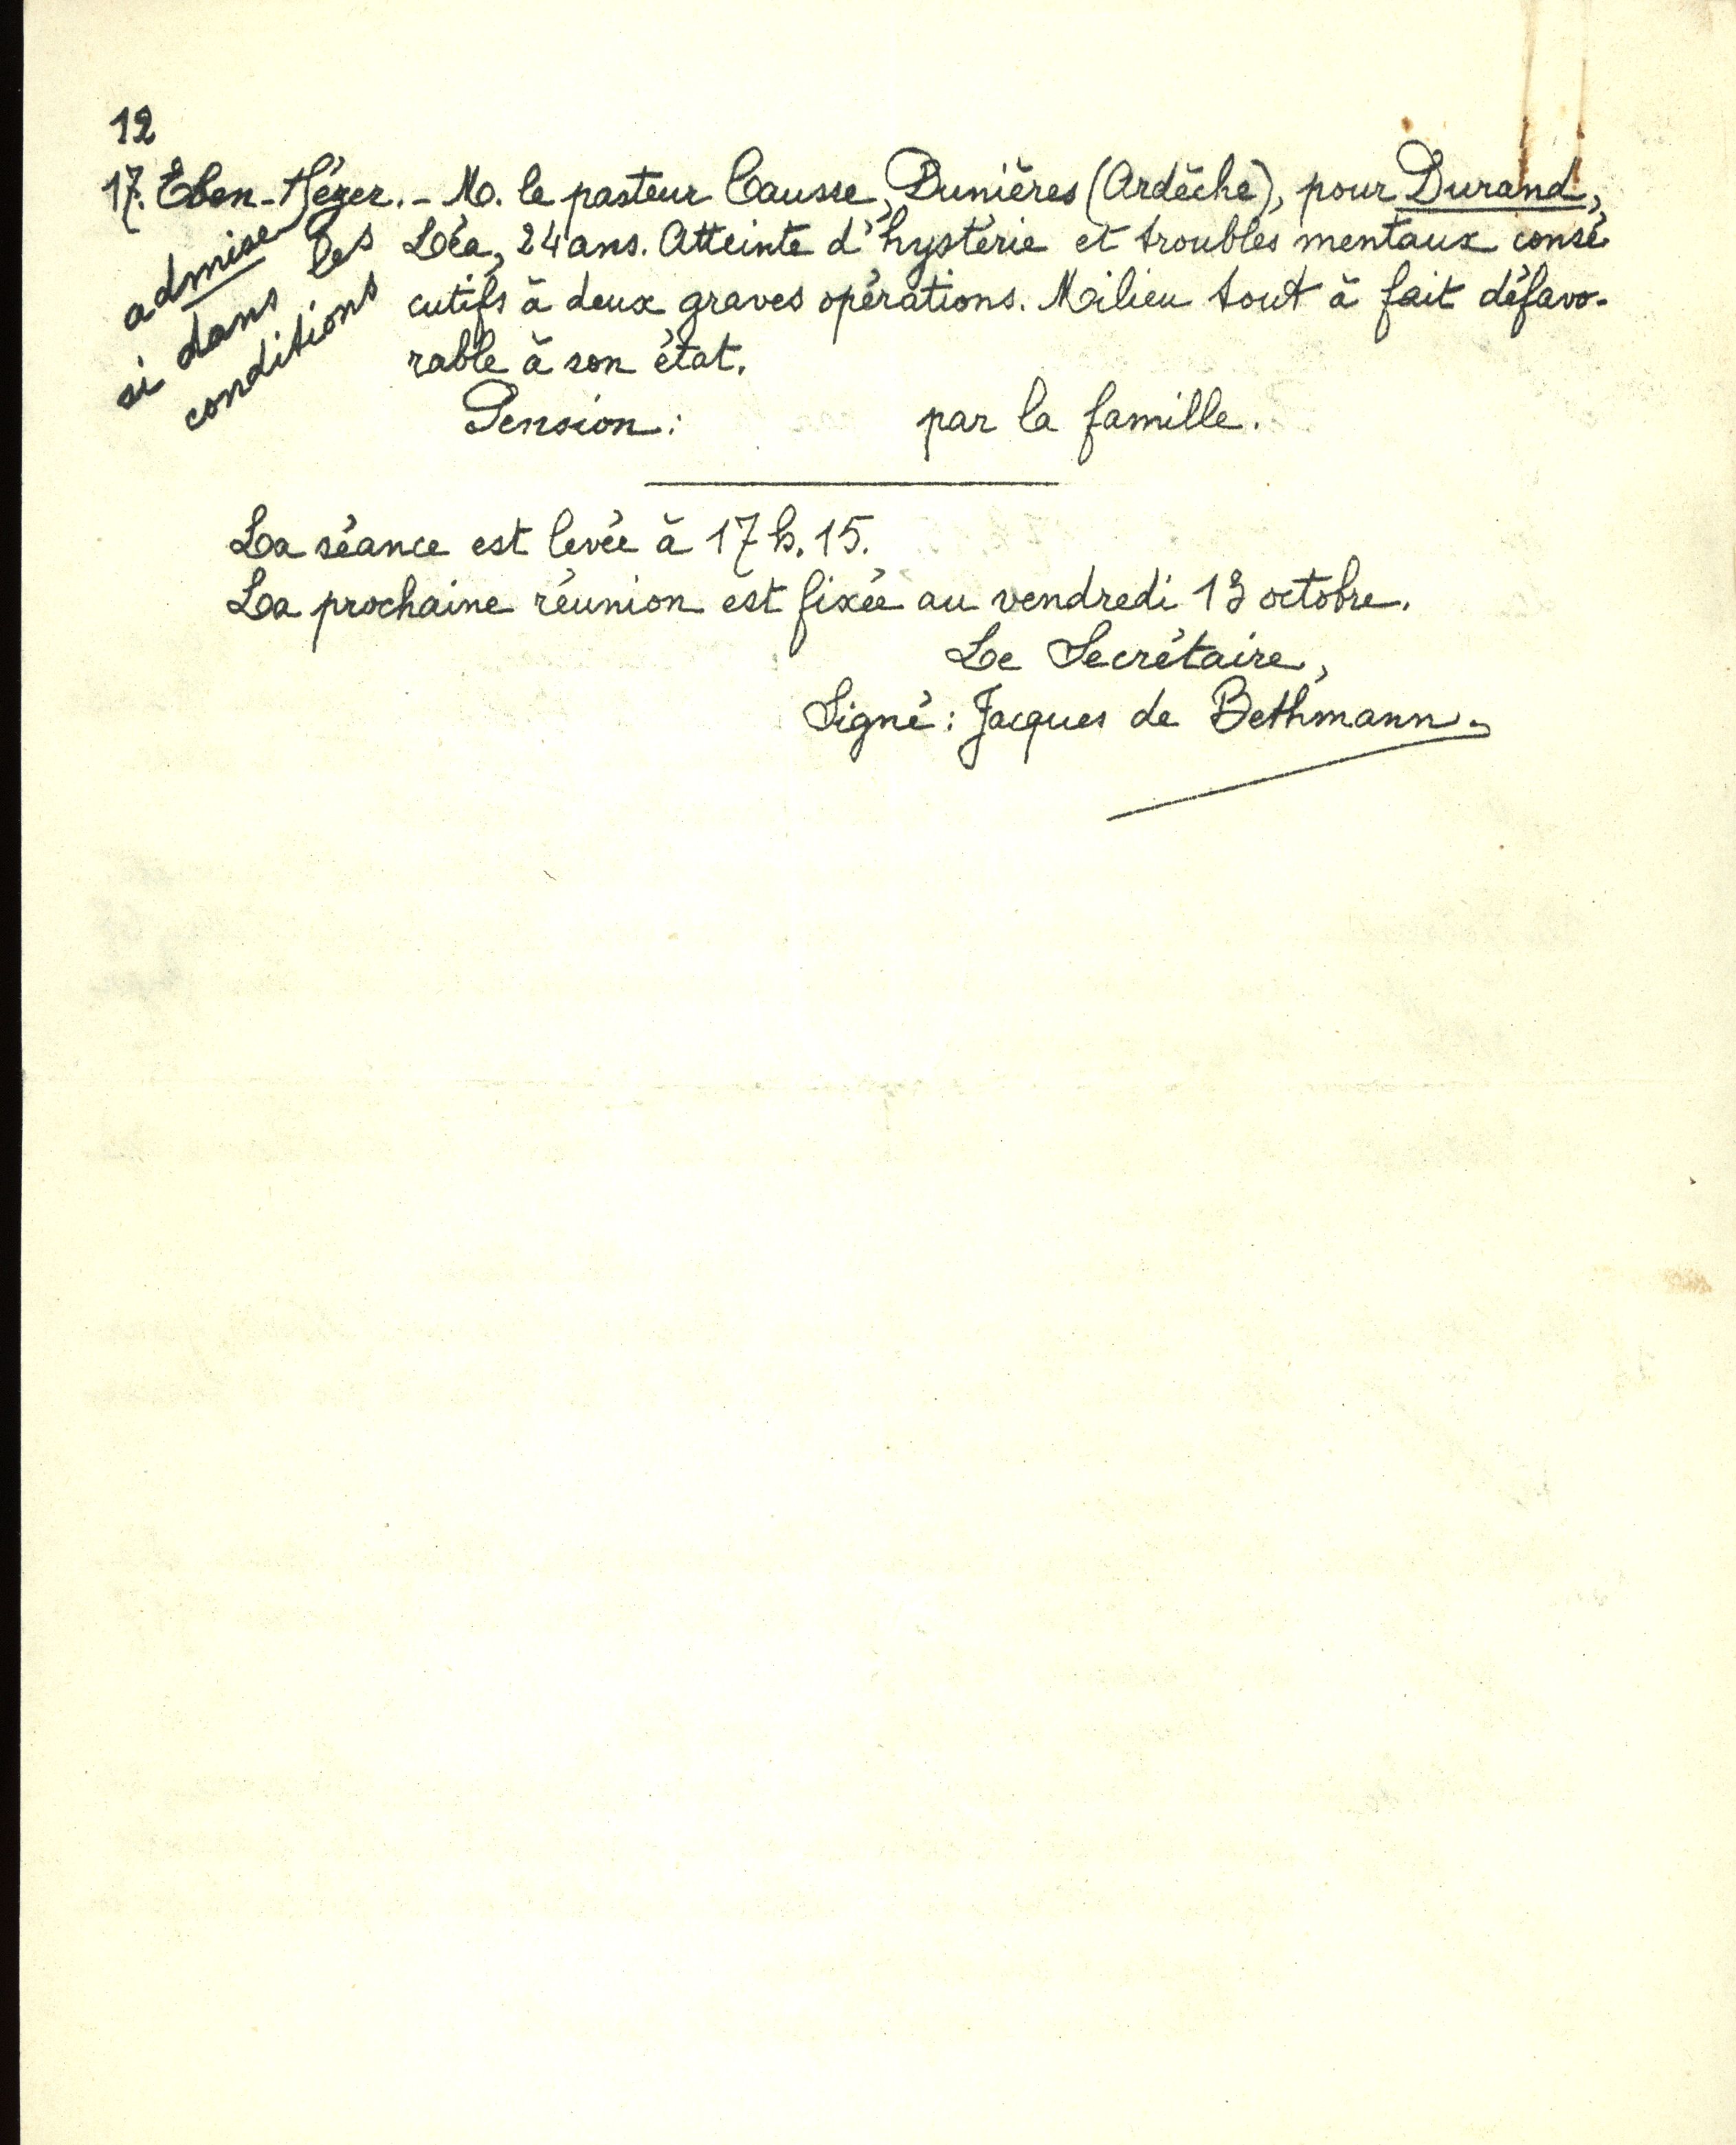 12
17. Eben-Hézer. - M. le pasteur Causse, Dunières (Ardèche), pour Durand,
Léa, 24 ans. Atteinte d'hystérie et troubles mentaux consé
cutifs à deux graves opérations. Milieu tout à fait défavo-
rable à son état.
Pension: par la famille.
admise
si dans les
conditions
La séance est levée à 17 h. 15.
La prochaine réunion est fixée au vendredi 13 octobre.
Le Secrétaire,
Signé: Jacques de Bethmann.